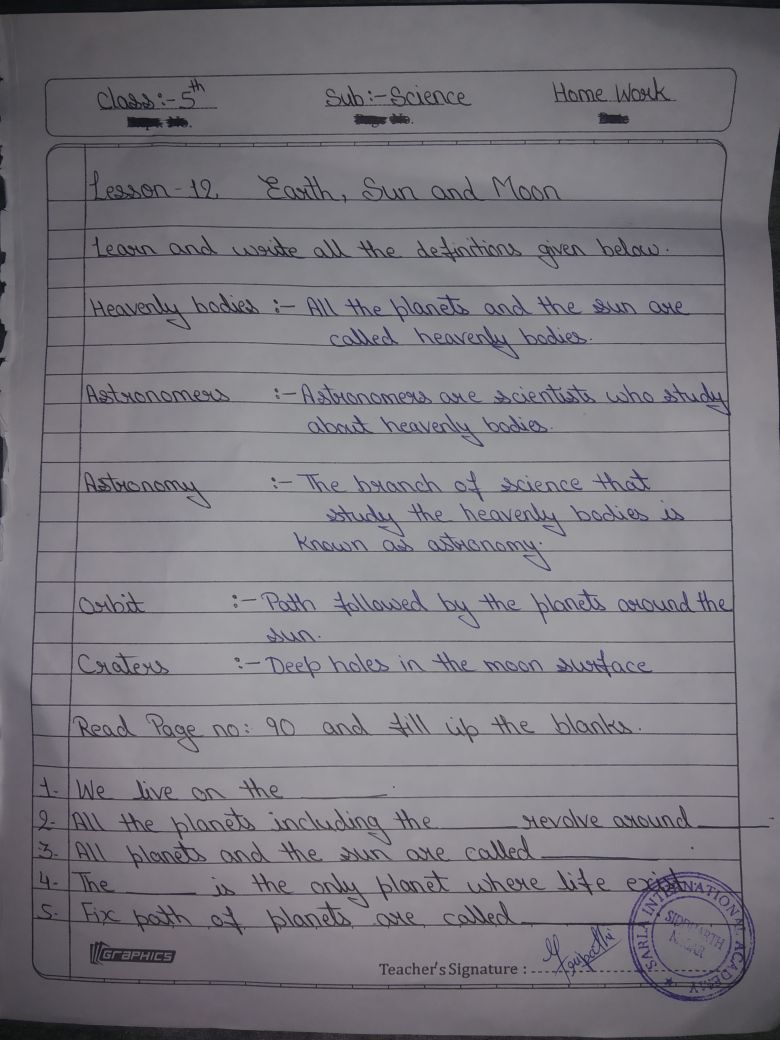 Class:- 5th Sub:- Science Home Work
Lesson - 12 Earth, Sun and Moon
Learn and write all the definitions given below.
Heavenly bodies :- All the planets and the sun are
called heavenly bodies.
Astronomers :- Astronomers are scientists who study
about heavenly bodies.
Astronomy :- The branch of science that
study the heavenly bodies is
known as astronomy.
Orbit :- Path followed by the planets around the
sun.
Craters :- Deep holes in the moon surface
Read Page no: 90 and fill up the blanks.
1. We live on the ______.
2. All the planets including the ______ revolve around ______
3. All planets and the sun are called ______.
4. The ______ is the only planet where life exist
5. Fix path of planets are called ______
GRAPHICS
Teacher's Signature : Tripathi
SARLA INTERNATIONAL ACADEMY
SIDDHARTH
NAGAR